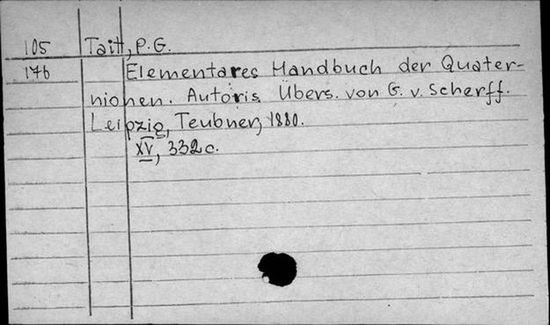 105 Tait, P.G.
176 Elementares Handbuch der Quater-
nionen. Autoris. Übers. von G. v. Scherff.
Leipzig, Teubner, 1880.
XV, 332 c.